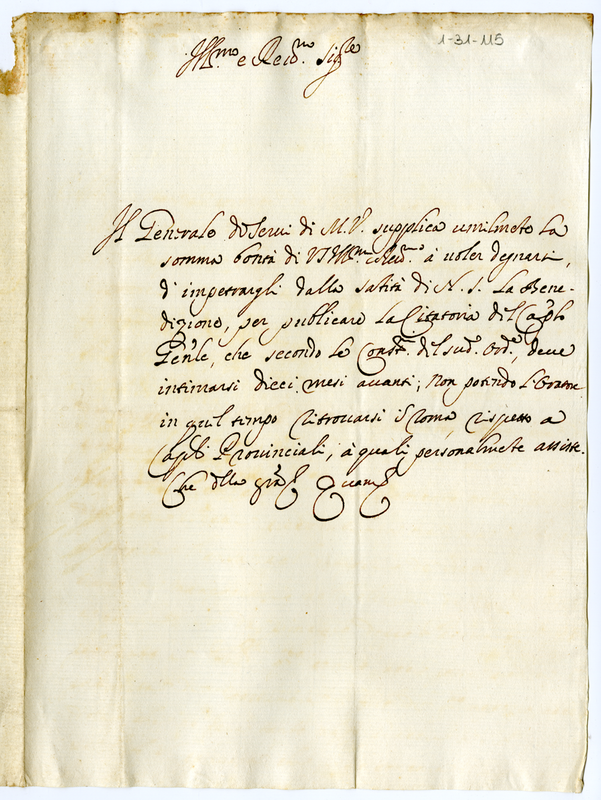 1-31-115
Ill.mo e Reu.mo Sig.re
Il Generale de Serui di M.V. supplica umilmẽte la
somma bontà di V.S. Ill.ma e Reu.ma à uoler degnarsi,
d'impetrargli dalla satità di N.S. la Bene-
dizione, per publicare la Citatoria del Cap̃lo
Gen̄le, che secondo le Const. del sud.o Ord.e, deue
intimarsi dieci mesi auanti; non potendo l'Oratore
in quel tempo ritrouarsi ĩ Roma, rispetto a
Cap̃li Prouinciali, à quali personalmẽte assiste.
Che della grã Quam